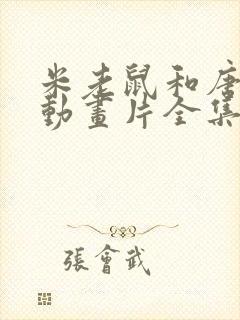 米老鼠和唐
動畫片全集
張會武